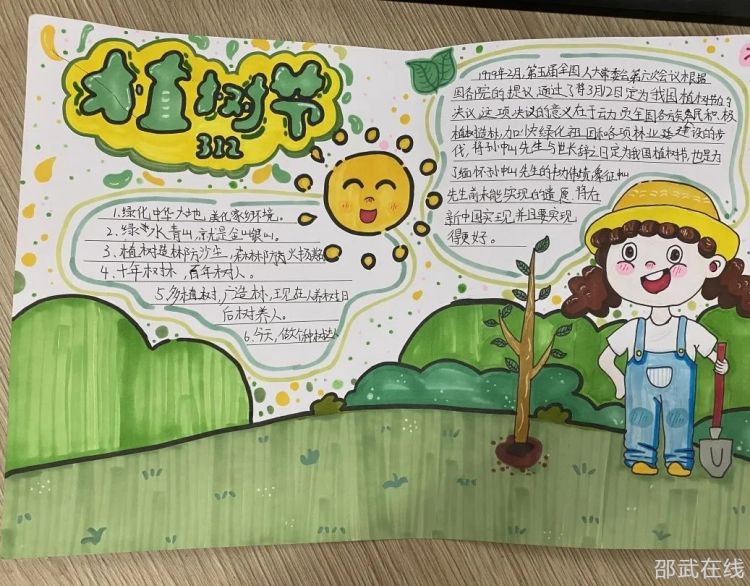 植树节
312
1.绿化中华大地,美化家乡环境。
2.绿水青山,就是金山银山。
3.植树造林防沙尘,森林防病
4.十年树木,百年树人。
5.多植树,广造林,现在人养树生日
后树养人。
6.今天,做个种树
1979年2月,第五届全国人大常委会第六次会议根据
国务院的提议,通过了将3月12日定为我国植树节的
决议,这项决议的意义在于动员全国各族人民积极
植树造林,加快绿化祖国和各项林业建设的步
伐,将孙中山先生与世长辞之日定为我国植树节,也是为
了缅怀孙中山先生的丰功伟绩,象征中山
先生生前未能实现的遗愿,将在
新中国实现并且要实现
得更好。
邵武在线